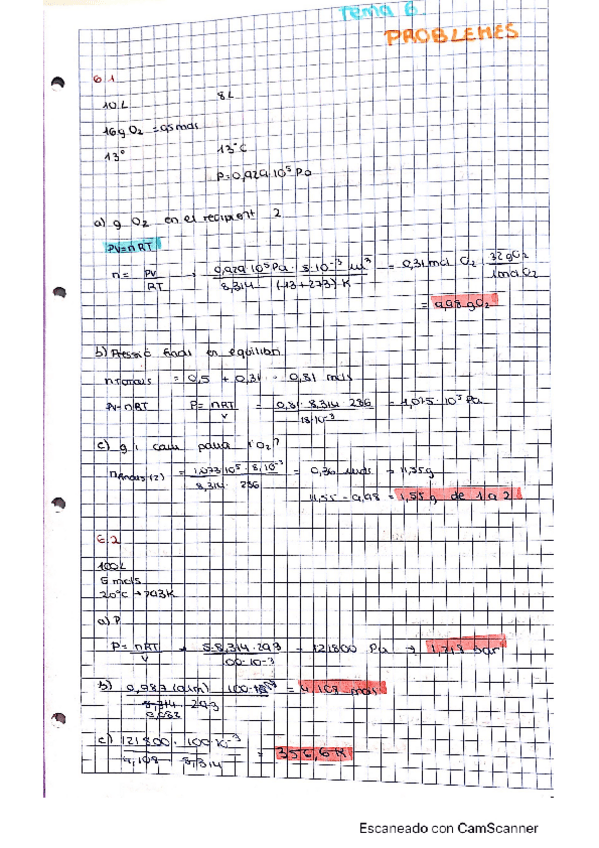 Tema 6
PROBLEMES
6.1
10 L 8 L
16g O2 = 0,5 mols
13° 13°C
P=0,929·10⁵ Pa
a) g O2 en el recipient 2
PV=nRT
n = PV/RT → 0,929·10⁵ Pa · 8·10⁻³ m³ / 8,314 (13+273) K = 0,31 mol O2 · 32g O2 / 1mol O2
= 9,98 g O2
b) Pressió final en equilibri
n totals = 0,5 + 0,31 = 0,81 mols
PV=nRT P= nRT/V = 0,81·8,314·286 / 18·10⁻³ = 1,075·10⁵ Pa
c) g i cam O2?
n finals (2) = 1,073·10⁵·8·10⁻³ / 8,314·286 = 0,36 mols → 11,55g
11,55 - 9,98 = 1,55g de 1 a 2
6.2
100L
5 mols
20°C → 293K
a) P
P= nRT/V → 5·8,314·293 / 100·10⁻³ = 121800 Pa → 1,218 bar
b) 0,987 (atm) 100 / 293 = 4,108 mols
0,082
c) 121800·100·10⁻³ / 4,108 · 8,314 = 356,6 K
Escaneado con CamScanner